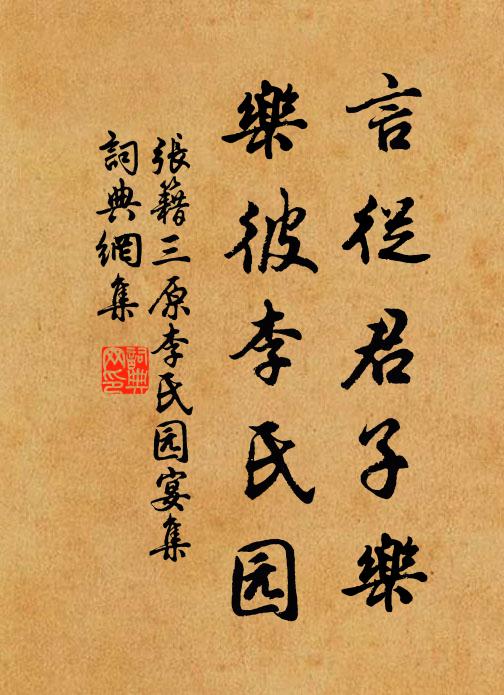 言從君子樂
樂彼李氏园
張籍三原李氏园宴集
詞典網集
詞典網印